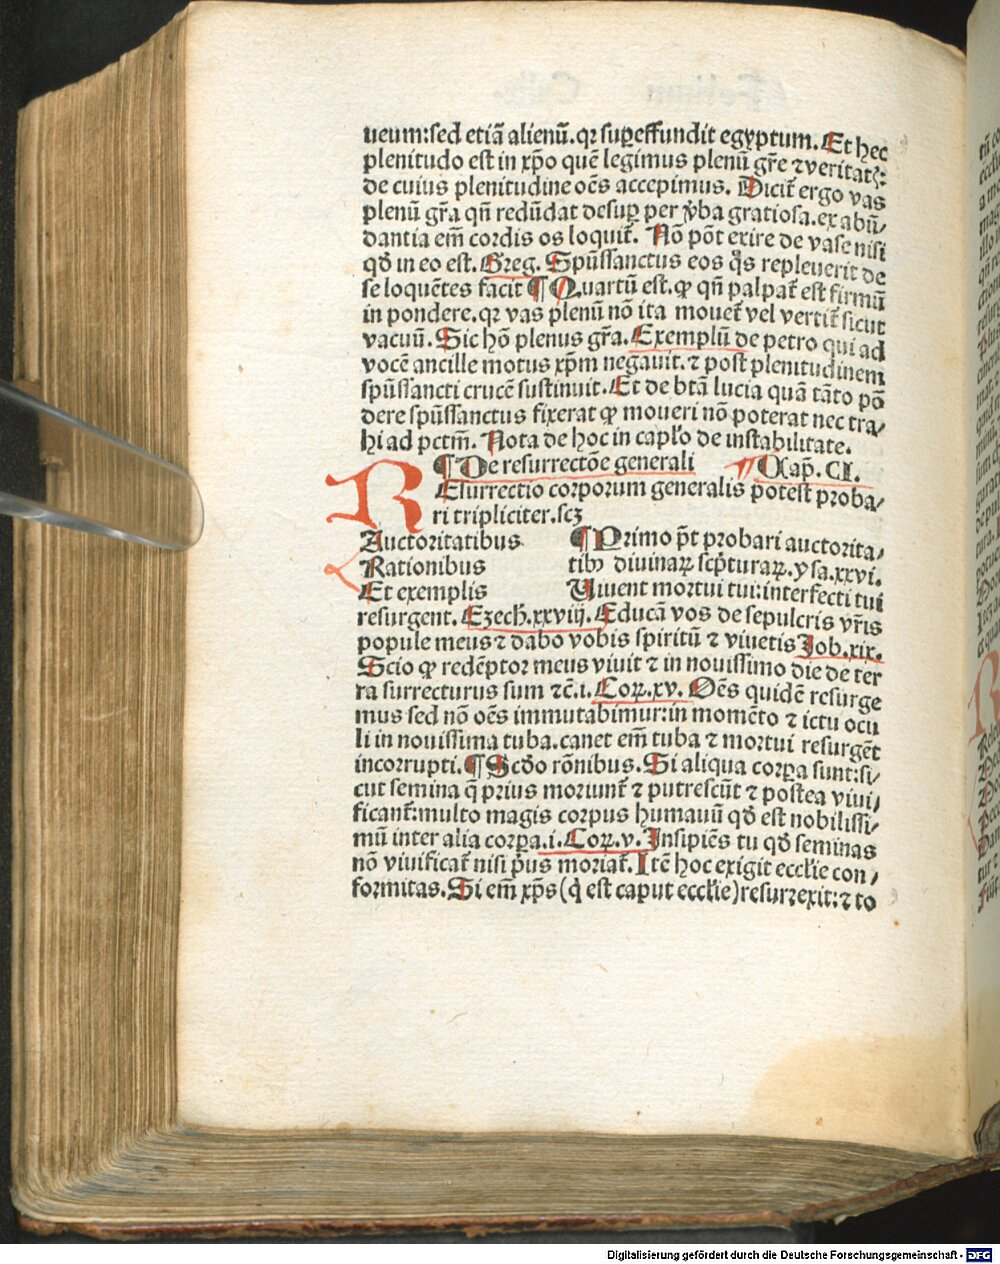 ueum:sed etiā alienū.qꝛ suꝑeffundit egyptum.Et hec
plenitudo est in xp̄o quē legimus plenū gr̄e ⁊veritatꝭ:
de cuius plenitudine oēs accepimus. Dicit̄ ergo vas
plenū gr̄a qn̄ redūdat desuꝑ per ṽba gratiosa.ex abū⸗
dantia em̄ cordis os loquit̄. Nō pōt exire de vase nisi
qd̄ in eo est. Greg. Spūssanctus eos q̊s repleuerit de
se loquētes facit ¶ Quartū est.ꝙ qn̄ palpat̄ est firmū
in pondere.qꝛ vas plenū nō ita mouet̄ vel vertit̄ sicut
vacuū. Sic hō plenus gr̄a. Exemplū de petro qui ad
vocē ancille motus xp̄m negauit.⁊ post plenitudinem
spūssancti crucē sustinuit. Et de btā lucia quā tāto pō
dere spūssanctus fixerat ꝙ moueri nō poterat nec tra⸗
hi ad pctm̄. Nota de hoc in capl̄o de instabilitate.
¶ De resurrectōe generali ¶ Cap̄. CI.
REsurrectio corporum generalis potest proba⸗
ri tripliciter.scꝫ
Auctoritatibus ¶ Primo pt̄ probari auctorita⸗
Rationibus tibꝰ diuinaꝝ scp̄turaꝝ. ysa.xxvi.
Et exemplis Viuent mortui tui:interfecti tui
resurgent. Ezech.xxviij. Educā vos de sepulcris vr̄is
popule meus ⁊ dabo vobis spiritū ⁊ viuetis Job.xix.
Scio ꝙ redēptor meus viuit ⁊ in nouissimo die de ter
ra surrecturus sum ⁊c̄.i. Coꝝ.xv. Oēs quidē resurge
mus sed nō oēs immutabimur:in momēto ⁊ ictu ocu
li in nouissima tuba.canet em̄ tuba ⁊ mortui resurgēt
incorrupti. ¶ Scd̄o rōnibus. Si aliqua corꝑa sunt:si⸗
cut semina q̄ prius moriunt̄ ⁊ putrescūt ⁊ postea viui⸗
ficant̄:multo magis corpus humanū qd̄ est nobilissi⸗
mū inter alia corꝑa.i. Coꝝ.v. Insipiēs tu qd̄ seminas
nō viuificat̄ nisi p̄us moriat̄. Itē hoc exigit eccl̄ie con⸗
formitas. Si em̄ xp̄s (q̇ est caput eccl̄ie) resurrexit:⁊ to
Digitalisierung gefördert durch die Deutsche Forschungsgemeinschaft - DFG